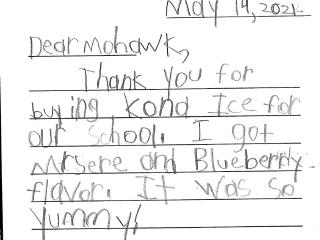 May 14, 2021
Dear Mohawk,
Thank you for
buying Kona Ice for
our school. I got
Mrsere and Blueberry
flavor. It was so
yummy!